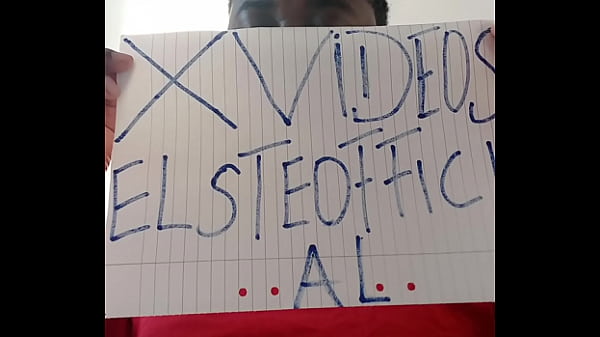 XVIDEOS
ELSTEOFFICI
..AL..